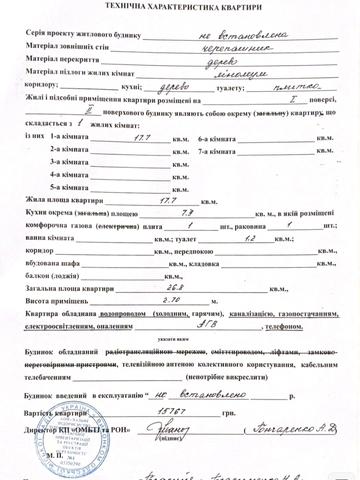 ТЕХНІЧНА ХАРАКТЕРИСТИКА КВАРТИРИ
Серія проекту житлового будинку не встановлена
Матеріал зовнішніх стін черепашник
Матеріал перекриття дерев
Матеріал підлоги жилих кімнат лінолеум
коридору; кухні; дерево туалету; плитка
Жилі і підсобні приміщення квартири розміщені на I поверсі,
II поверхового будинку являють собою окрему (загальну) квартиру, що
складається з 1 жилих кімнат:
із них 1-а кімната 17.7 кв.м. 6-а кімната кв.м.
2-а кімната кв.м. 7-а кімната кв.м.
3-а кімната кв.м.
4-а кімната кв.м.
5-а кімната кв.м.
Жила площа квартири 17.7 кв.м.
Кухня окрема (загальна) площею 7.9 кв. м., в якій розміщені
комфорочна газова (електрична) плита 1 шт., раковина 1 шт.;
ванна кімната кв.м.; туалет 1.2 кв.м.;
коридор кв.м., передпокою кв.м.,
вбудована шафа кв.м., кладовка кв.м.,
балкон (лоджія) кв.м.,
Загальна площа квартири 26.8 кв.м.,
Висота приміщень 2.70 м.
Квартира обладнана водопроводом (холодним, гарячим), каналізацією, газопостачанням,
електроосвітленням, опаленням АГВ, телефоном.
указати яким
Будинок обладнаний радіотрансляційною мережею, сміттєпроводом, ліфтами, замково-
переговорними пристроями, телевізійною антеною колективного користування, кабельним
телебаченням (непотрібне викреслити)
Будинок введений в експлуатацію " не встановлено р.
Вартість квартири 15767 грн.
Директор КП «ОМБТІ та РОН» (Гончаренко А.Д)
(підпис)
М. П.